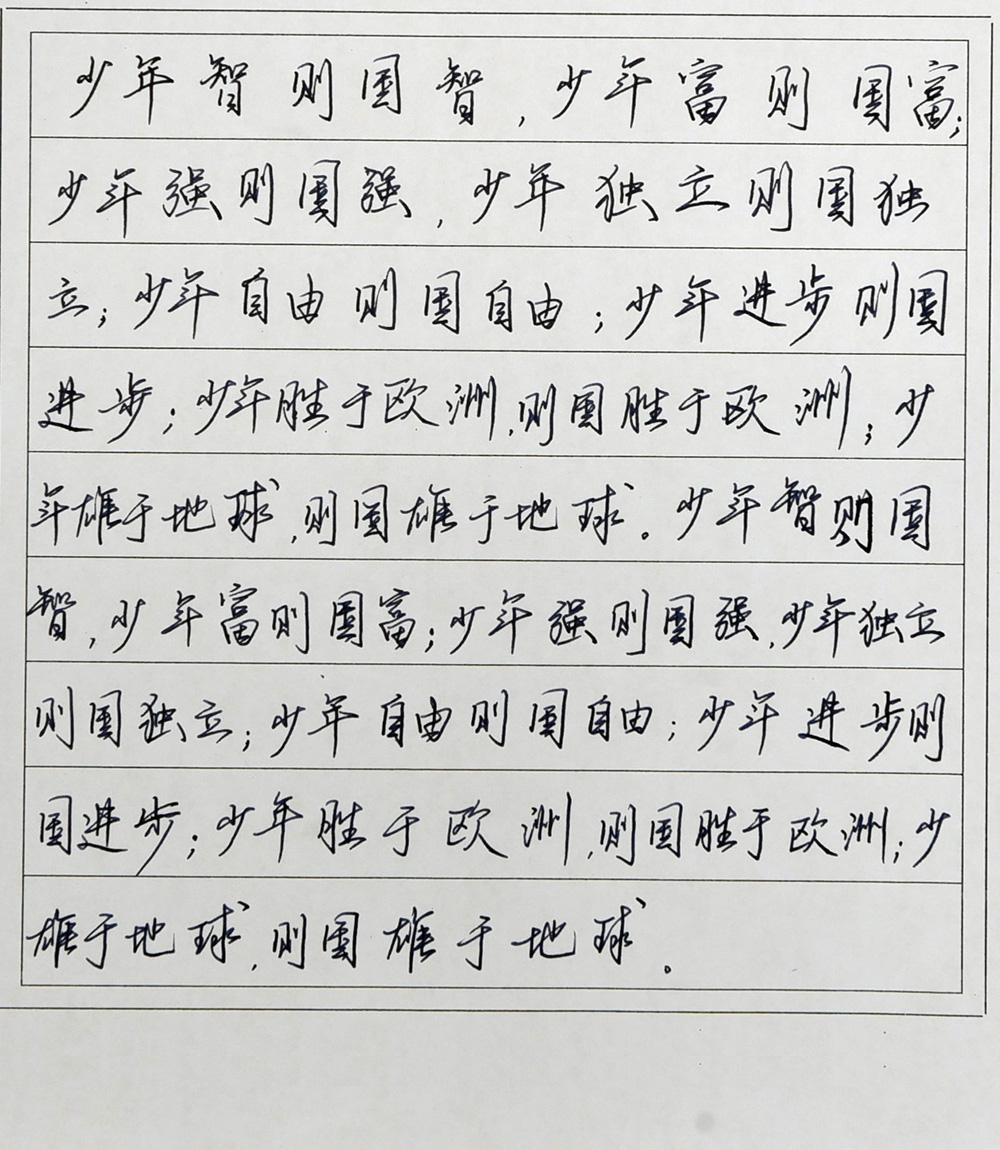 少年智则国智,少年富则国富;
少年强则国强,少年独立则国独
立;少年自由则国自由;少年进步则国
进步;少年胜于欧洲,则国胜于欧洲;少
年雄于地球,则国雄于地球。少年智则国
智,少年富则国富;少年强则国强,少年独立
则国独立;少年自由则国自由;少年进步则
国进步;少年胜于欧洲,则国胜于欧洲;少
雄于地球,则国雄于地球。